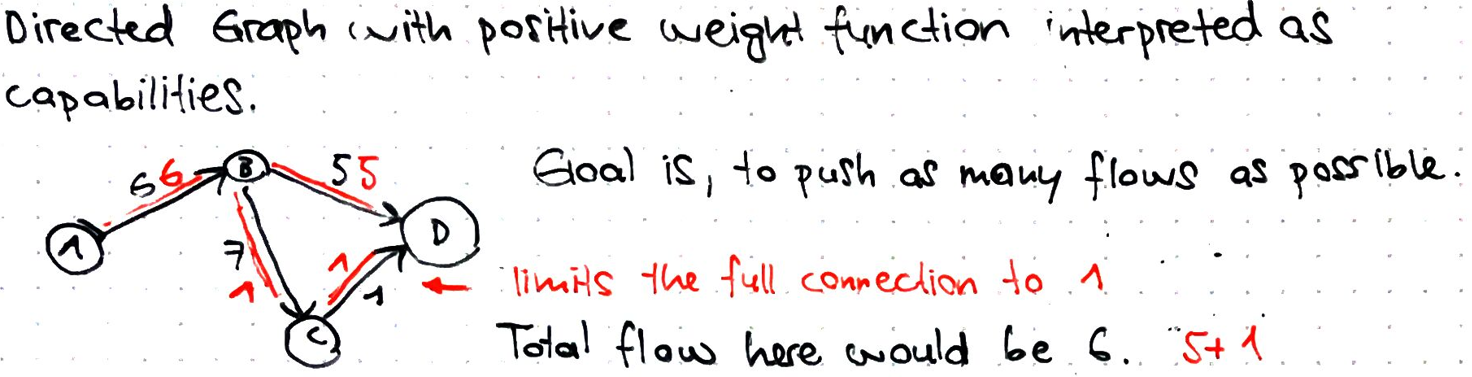 Directed Graph with positive weight function interpreted as
capabilities.
B
6 6
5 5
Goal is, to push as many flows as possible.
A
D
7
1
1
1
limits the full connection to 1
C
Total flow here would be 6. 5+1